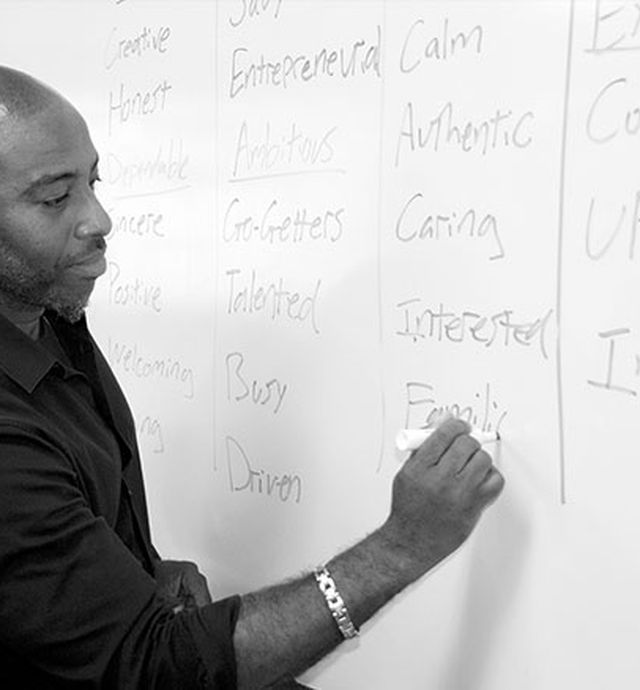 Creative
Honest
Dependable
Sincere
Positive
Welcoming
ng
Savvy
Entrepreneurial
Ambitious
Go-Getters
Talented
Busy
Driven
Calm
Authentic
Caring
Interested
Familia
E
Co
UP
In